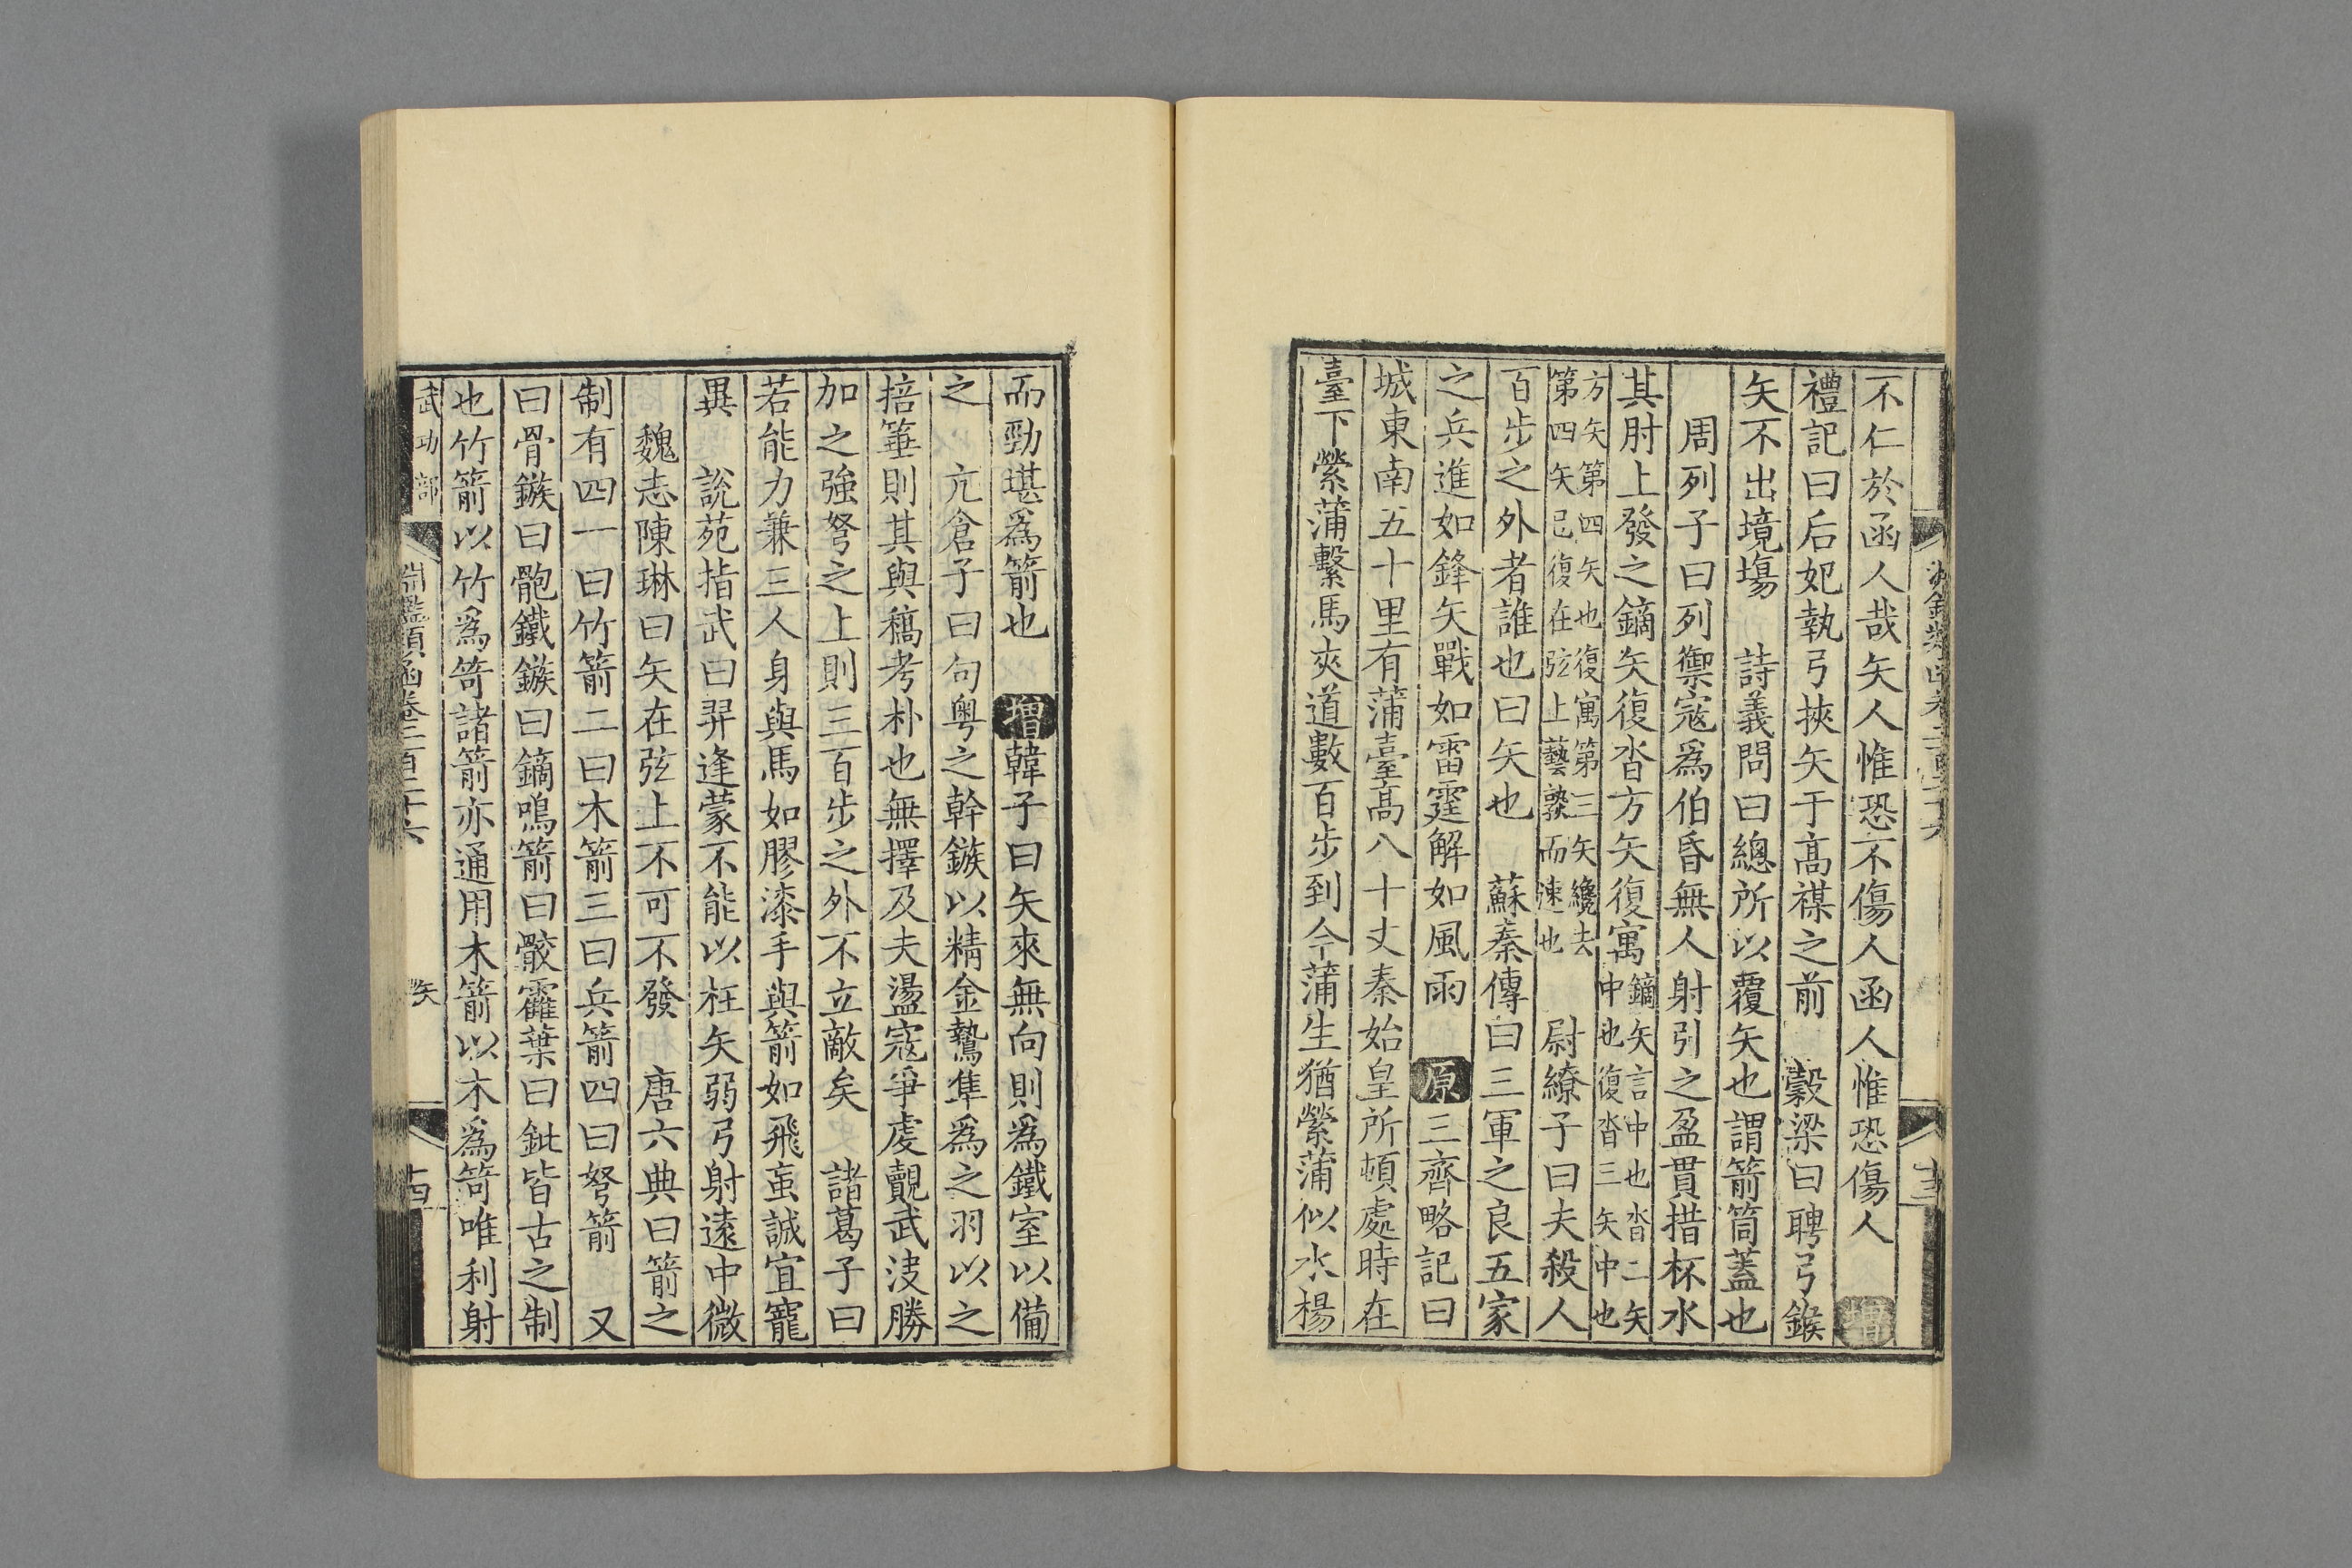 不仁於函人哉矢人惟恐不傷人函人惟恐傷人　增
禮記曰后妃執弓挾矢于高禖之前　穀梁曰聘弓鍭
矢不出境埸　詩義問曰緫所以覆矢也謂箭筒蓋也
周列子曰列禦寇爲伯昏無人射引之盈貫措杯水
其肘上發之鏑矢復沓方矢復寓鏑矢言中也沓二矢
中也復沓三矢中也
方矢第四矢也復寓第三矢纔去
第四矢已復在弦上藝孰而速也　尉繚子曰夫殺人
百步之外者誰也曰矢也　蘇秦傳曰三軍之良五家
之兵進如鋒矢戰如雷霆解如風雨　原三齊略記曰
城東南五十里有蒲臺高八十丈秦始皇所頓處時在
臺下縈蒲繫馬夾道數百步到今蒲生猶縈蒲似水楊
而勁堪爲箭也　增韓子曰矢來無向則爲鐵室以備
之　亢倉子曰句粵之幹鏃以精金鷙隼爲之羽以之
掊箠則其與槁考朴也無擇及夫盪寇爭處覿武決勝
加之強弩之上則三百步之外不立敵矣　諸葛子曰
若能力兼三人身與馬如膠漆手與箭如飛䖟誠宜寵
異　說苑指武曰羿逢蒙不能以枉矢弱弓射遠中微
魏志陳琳曰矢在弦上不可不發　唐六典曰箭之
制有四一曰竹箭二曰木箭三曰兵箭四曰弩箭　又
曰骨鏃曰骲鐵鏃曰鏑鳴箭曰骹靃葉曰鈚皆古之制
也竹箭以竹爲笴諸箭亦通用木箭以木爲笴唯利射
武功部
淵鑑類函卷二百二十六
矢
十四